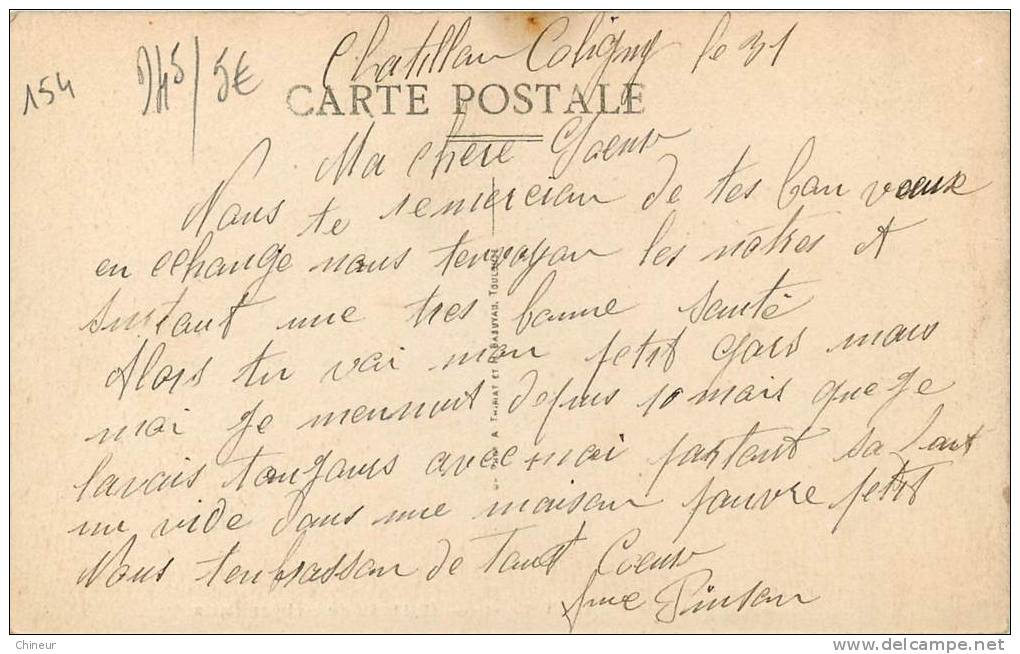 154
5€
Chatillon Coligny le 31
CARTE POSTALE
Ma chere Soeur
Nous te remercion de tes bon voeux
en echange nous tenvoyon les notres et
surtout une tres bonne santé
Alors tu voi mon petit gars mais
moi je mennuit depuis 10 mois que je
lavais toujours avec moi partout sa fait
un vide dans une maison pauvre petit
Nous tenbrasson de tout Coeur
Pinson
THIRIAT ET BASUYAU, TOULOUSE
Chineur
www.delcampe.net